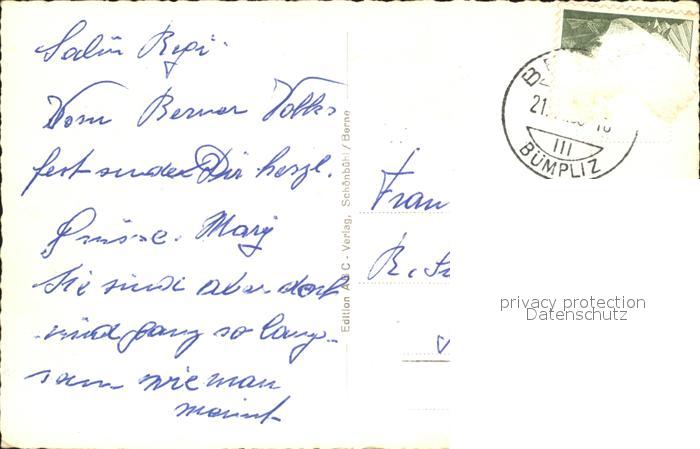 Salü Regi.
Vom Berner Volks
fest sendet Dir herzl.
Grüsse. Mary
Sie sind aber dort
nicht ganz so lang-
sam wie man
meint
Edition ABC - Verlag, Schönbühl / Berne
Frau
R.
21.
III
BÜMPLIZ
privacy protection
Datenschutz